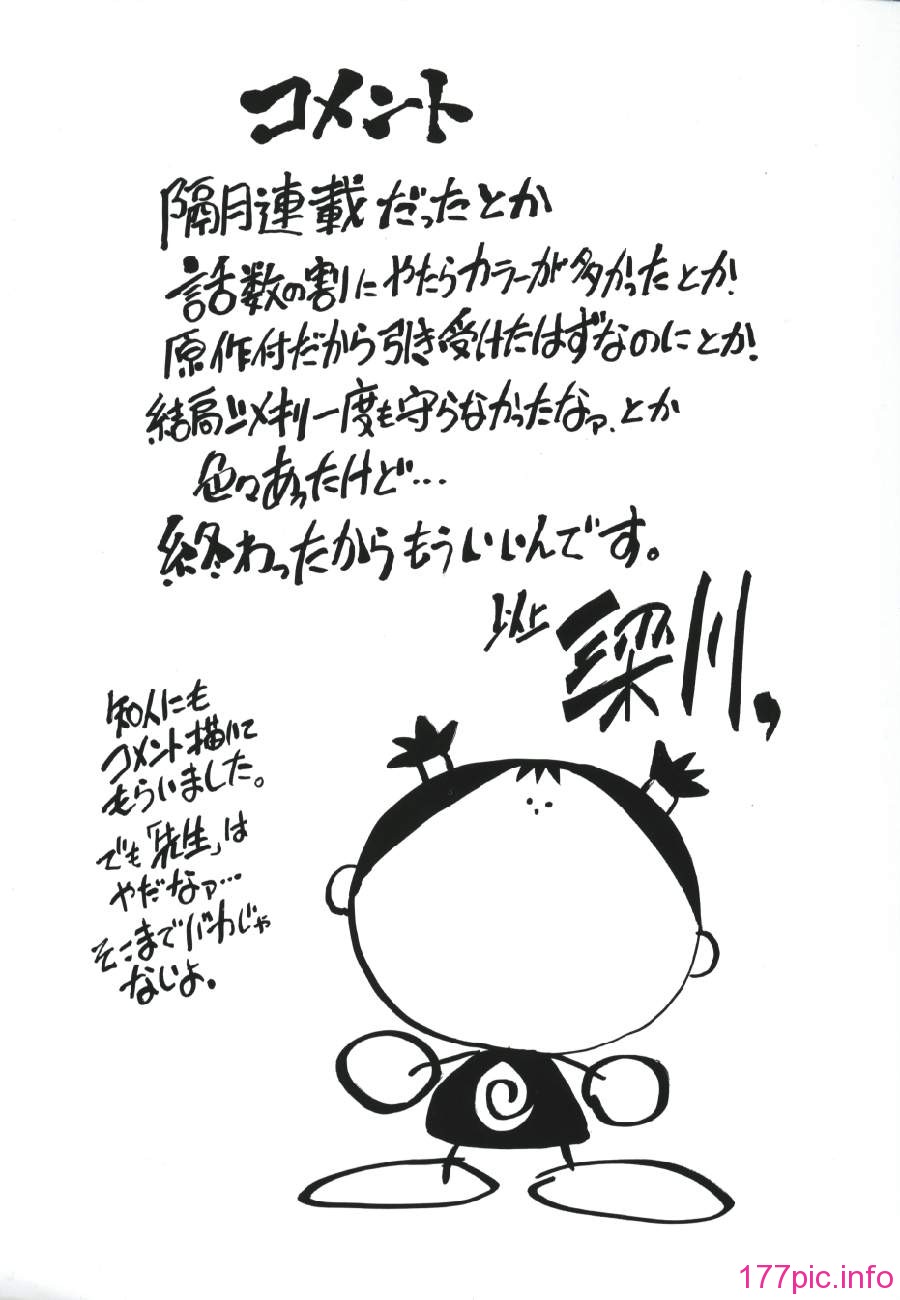 コメント
隔月連載だったとか
話数の割にやたらカラーが多かったとか、
原作付だから引き受けたはずなのにとか、
結局〆メキリ一度も守らなかったなァ、とか
色々あったけど…
終わったからもういいんです。
以上 深川,
知人にも
コメント描いて
もらいました。
でも「先生」は
やだなァ…
そこまでバカじゃ
ないよ。
177pic.info